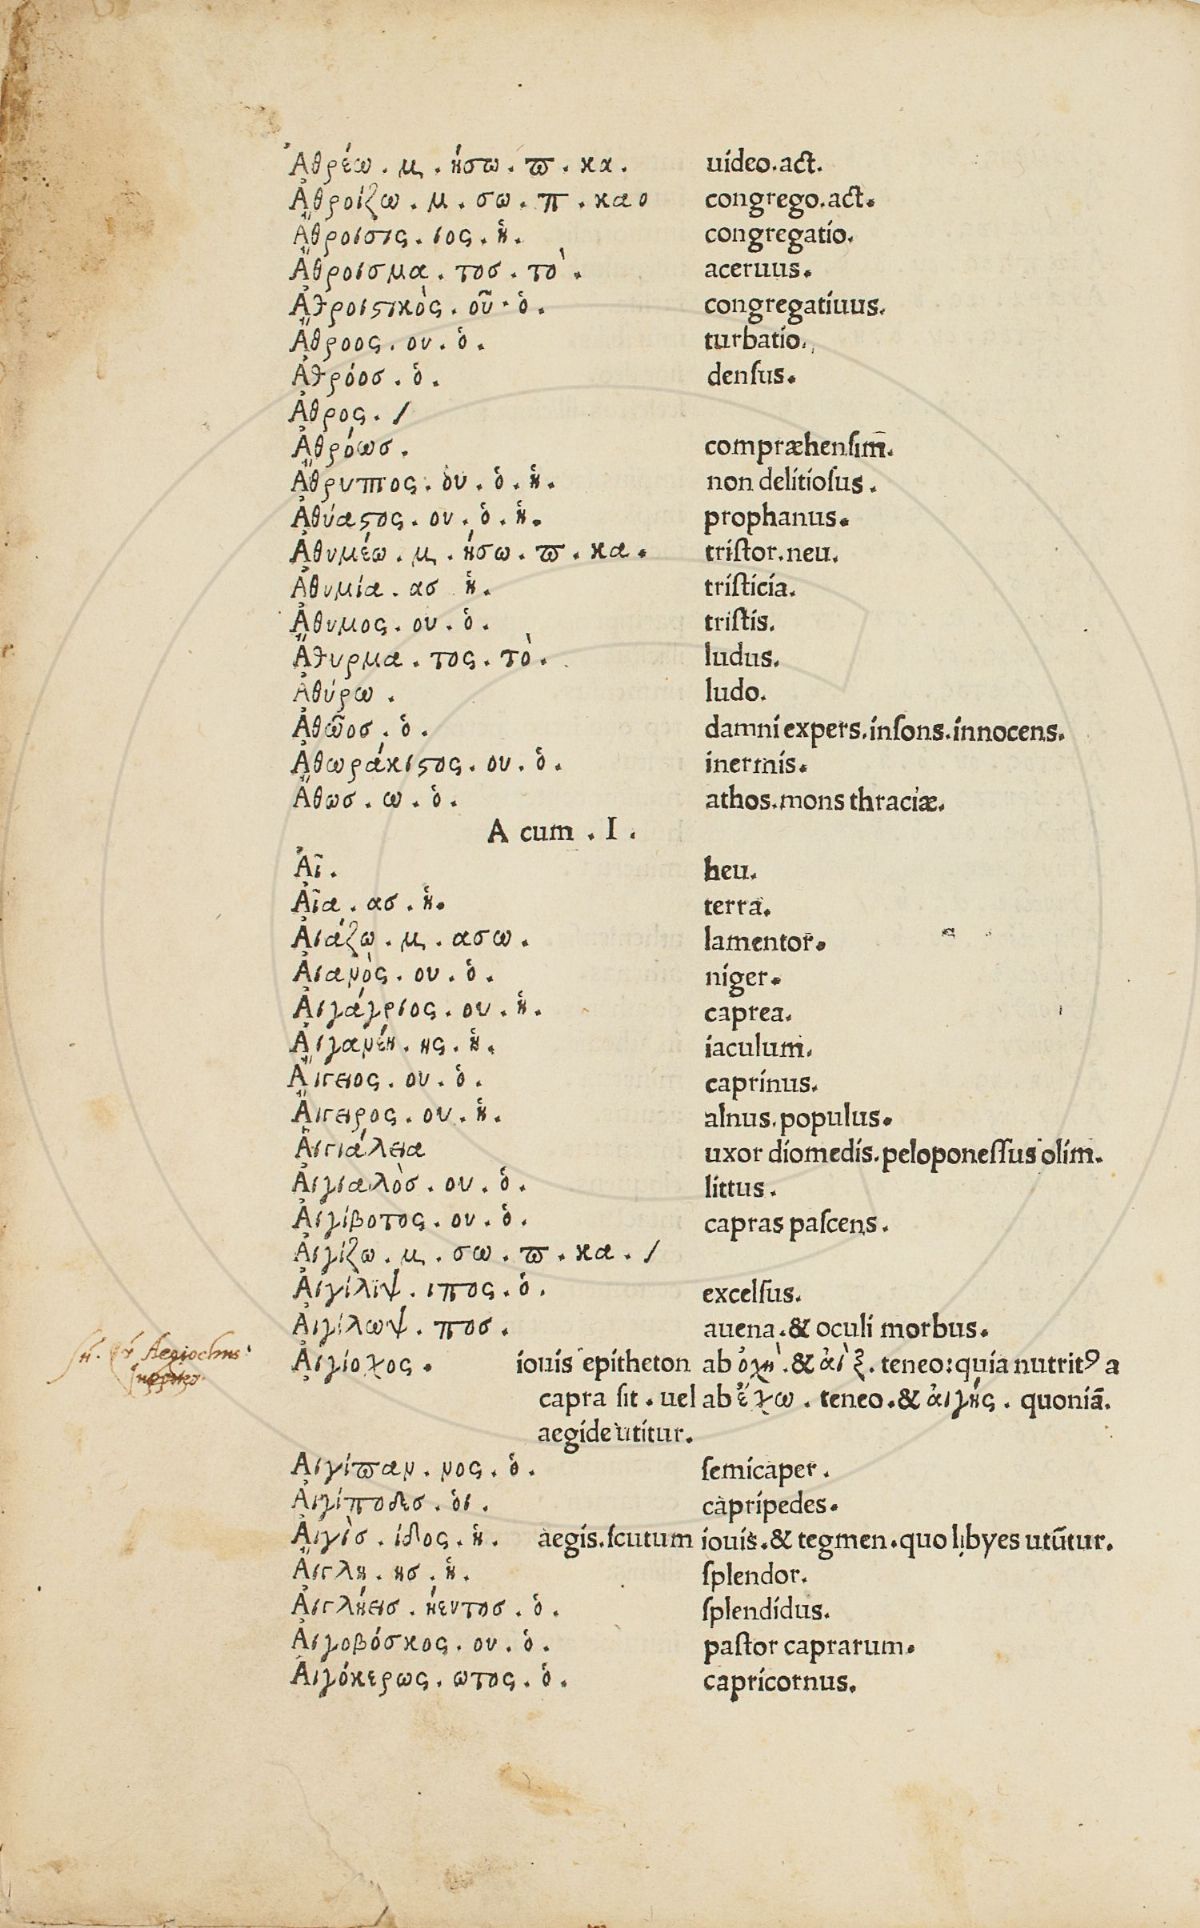 Ἀθρέω . μ . ήσω . π . κα . uideo.act.
Ἀθροίζω . μ . σω . π . κα . congrego.act.
Ἄθροισις . ιος . ἡ . congregatio.
Ἄθροισμα . τοσ . τὸ . aceruus.
Ἀθροιστικὸς . οῦ . ὁ . congregatiuus.
Ἄθροος . ου . ὁ . turbatio.
Ἀθρόοσ . ὁ . denſus.
Ἄθρος . /
Ἀθρόωσ . compræhenſim̄.
Ἄθρυπτος . ου . ὁ . ἡ . non delitioſus .
Ἀθύαστος . ου . ὁ . ἡ . prophanus.
Ἀθυμέω . μ . ήσω . π . κα . triſtor.neu.
Ἀθυμία . ασ ἡ . triſticia.
Ἄθυμος . ου . ὁ . triſtis.
Ἄθυρμα . τος . τὸ . ludus.
Ἀθύρω . ludo.
Ἀθῶοσ . ὁ . damni expers.inſons.innocens.
Ἀθωράκιστος . ου . ὁ . inermis.
Ἄθωσ . ω . ὁ . athos.mons thraciæ.
A cum . I .
Ἀῖ . heu.
Ἀῖα . ασ . ἡ . terra.
Ἀιάζω . μ . ασω . lamentor.
Ἀιανὸς . ου . ὁ . niger.
Ἀιγάγριος . ου . ἡ . caprea.
Ἀιγανέη . ης . ἡ . iaculum.
Ἄιγειος . ου . ὁ . caprinus.
Ἄιγειρος . ου . ἡ . alnus.populus.
Ἀιγιάλεια uxor diomedis.peloponeſſus olim.
Ἀιγιαλὸσ . ου . ὁ . littus .
Ἀιγίβοτος . ου . ὁ . capras paſcens .
Ἀιγίζω . μ . σω . π . κα . /
Ἀιγίλιψ . ιπος . ὁ . excelſus.
Ἀιγίλωψ . ποσ . auena.& oculi morbus.
Aegiochus
Ἀιγίοχος . iouis epitheton ab ὀχὴ.& ἀὶξ.teneo:quia nutritꝰ a
capra ſit . uel ab ἔχω . teneo.& ἀιγής . quoniā.
aegide utitur.
Ἀιγίπαν . νος . ὁ . ſemicaper .
Ἀιγίποδεσ . ὁι . capripedes.
Ἀιγὶσ . ίδος . ἡ . aegis.ſcutum iouis.& tegmen.quo libyes utūtur.
Ἄιγλη . ησ . ἡ . ſplendor.
Ἀιγλήεισ . ήεντοσ . ὁ . ſplendidus.
Ἀιγοβόσκος . ου . ὁ . paſtor caprarum.
Ἀιγόκερως . ωτος . ὁ . capricornus.